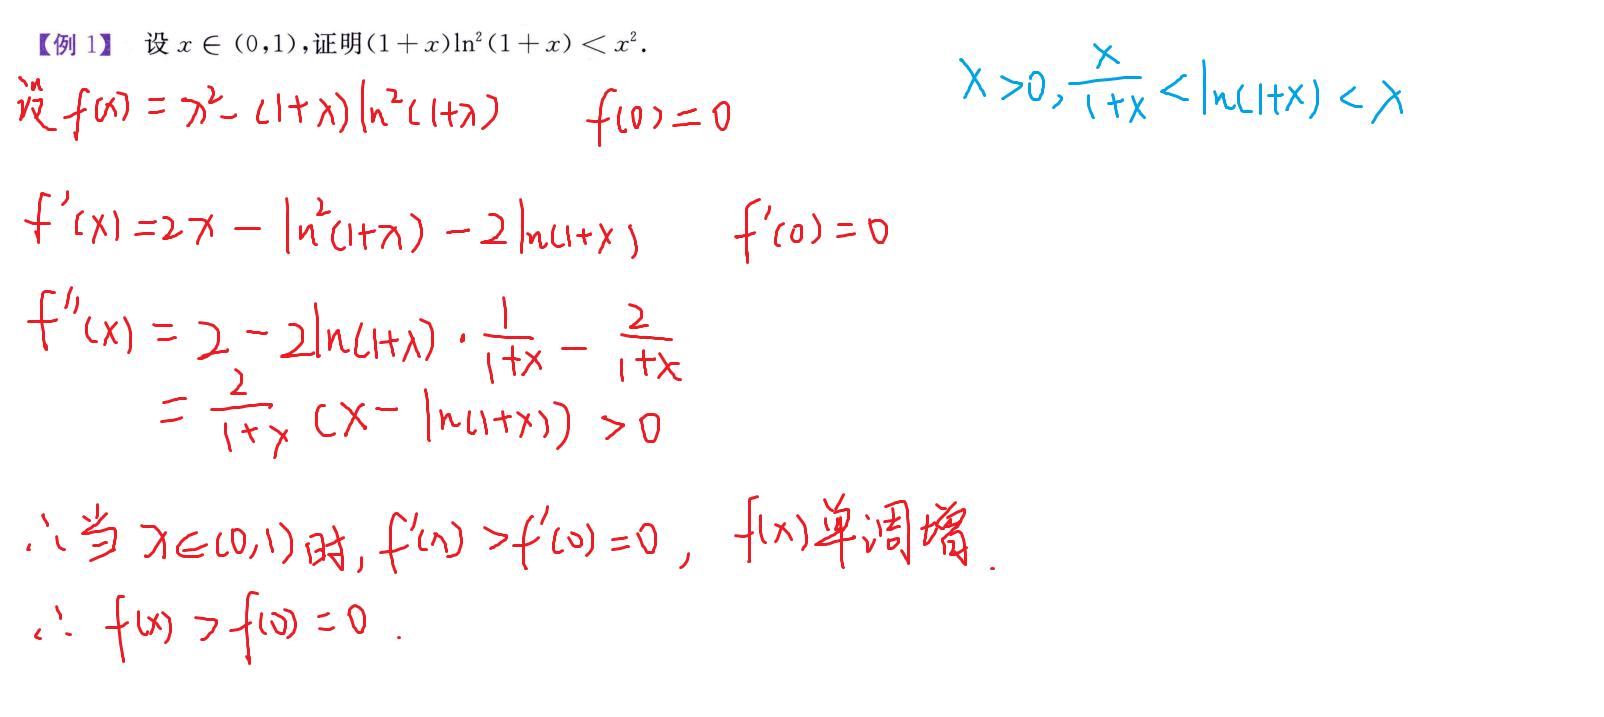 【例 1】 设 x ∈ (0,1),证明(1+x)ln²(1+x) < x².
x>0, x/(1+x) < ln(1+x) < x
设 f(x) = x² - (1+x)ln²(1+x) f(0) = 0
f'(x) = 2x - ln²(1+x) - 2ln(1+x) f'(0) = 0
f''(x) = 2 - 2ln(1+x)·1/(1+x) - 2/(1+x)
= 2/(1+x) (x - ln(1+x)) > 0
∴当 x∈(0,1)时, f'(x) > f'(0) = 0, f(x)单调增.
∴ f(x) > f(0) = 0.